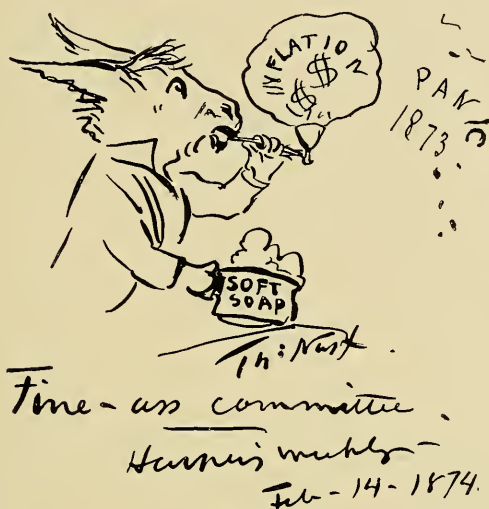 INFLATION
$
$
PANIC
1873.
SOFT
SOAP
Th: Nast.
Fine-ass committee.
Harper's weekly-
Feb-14-1874.